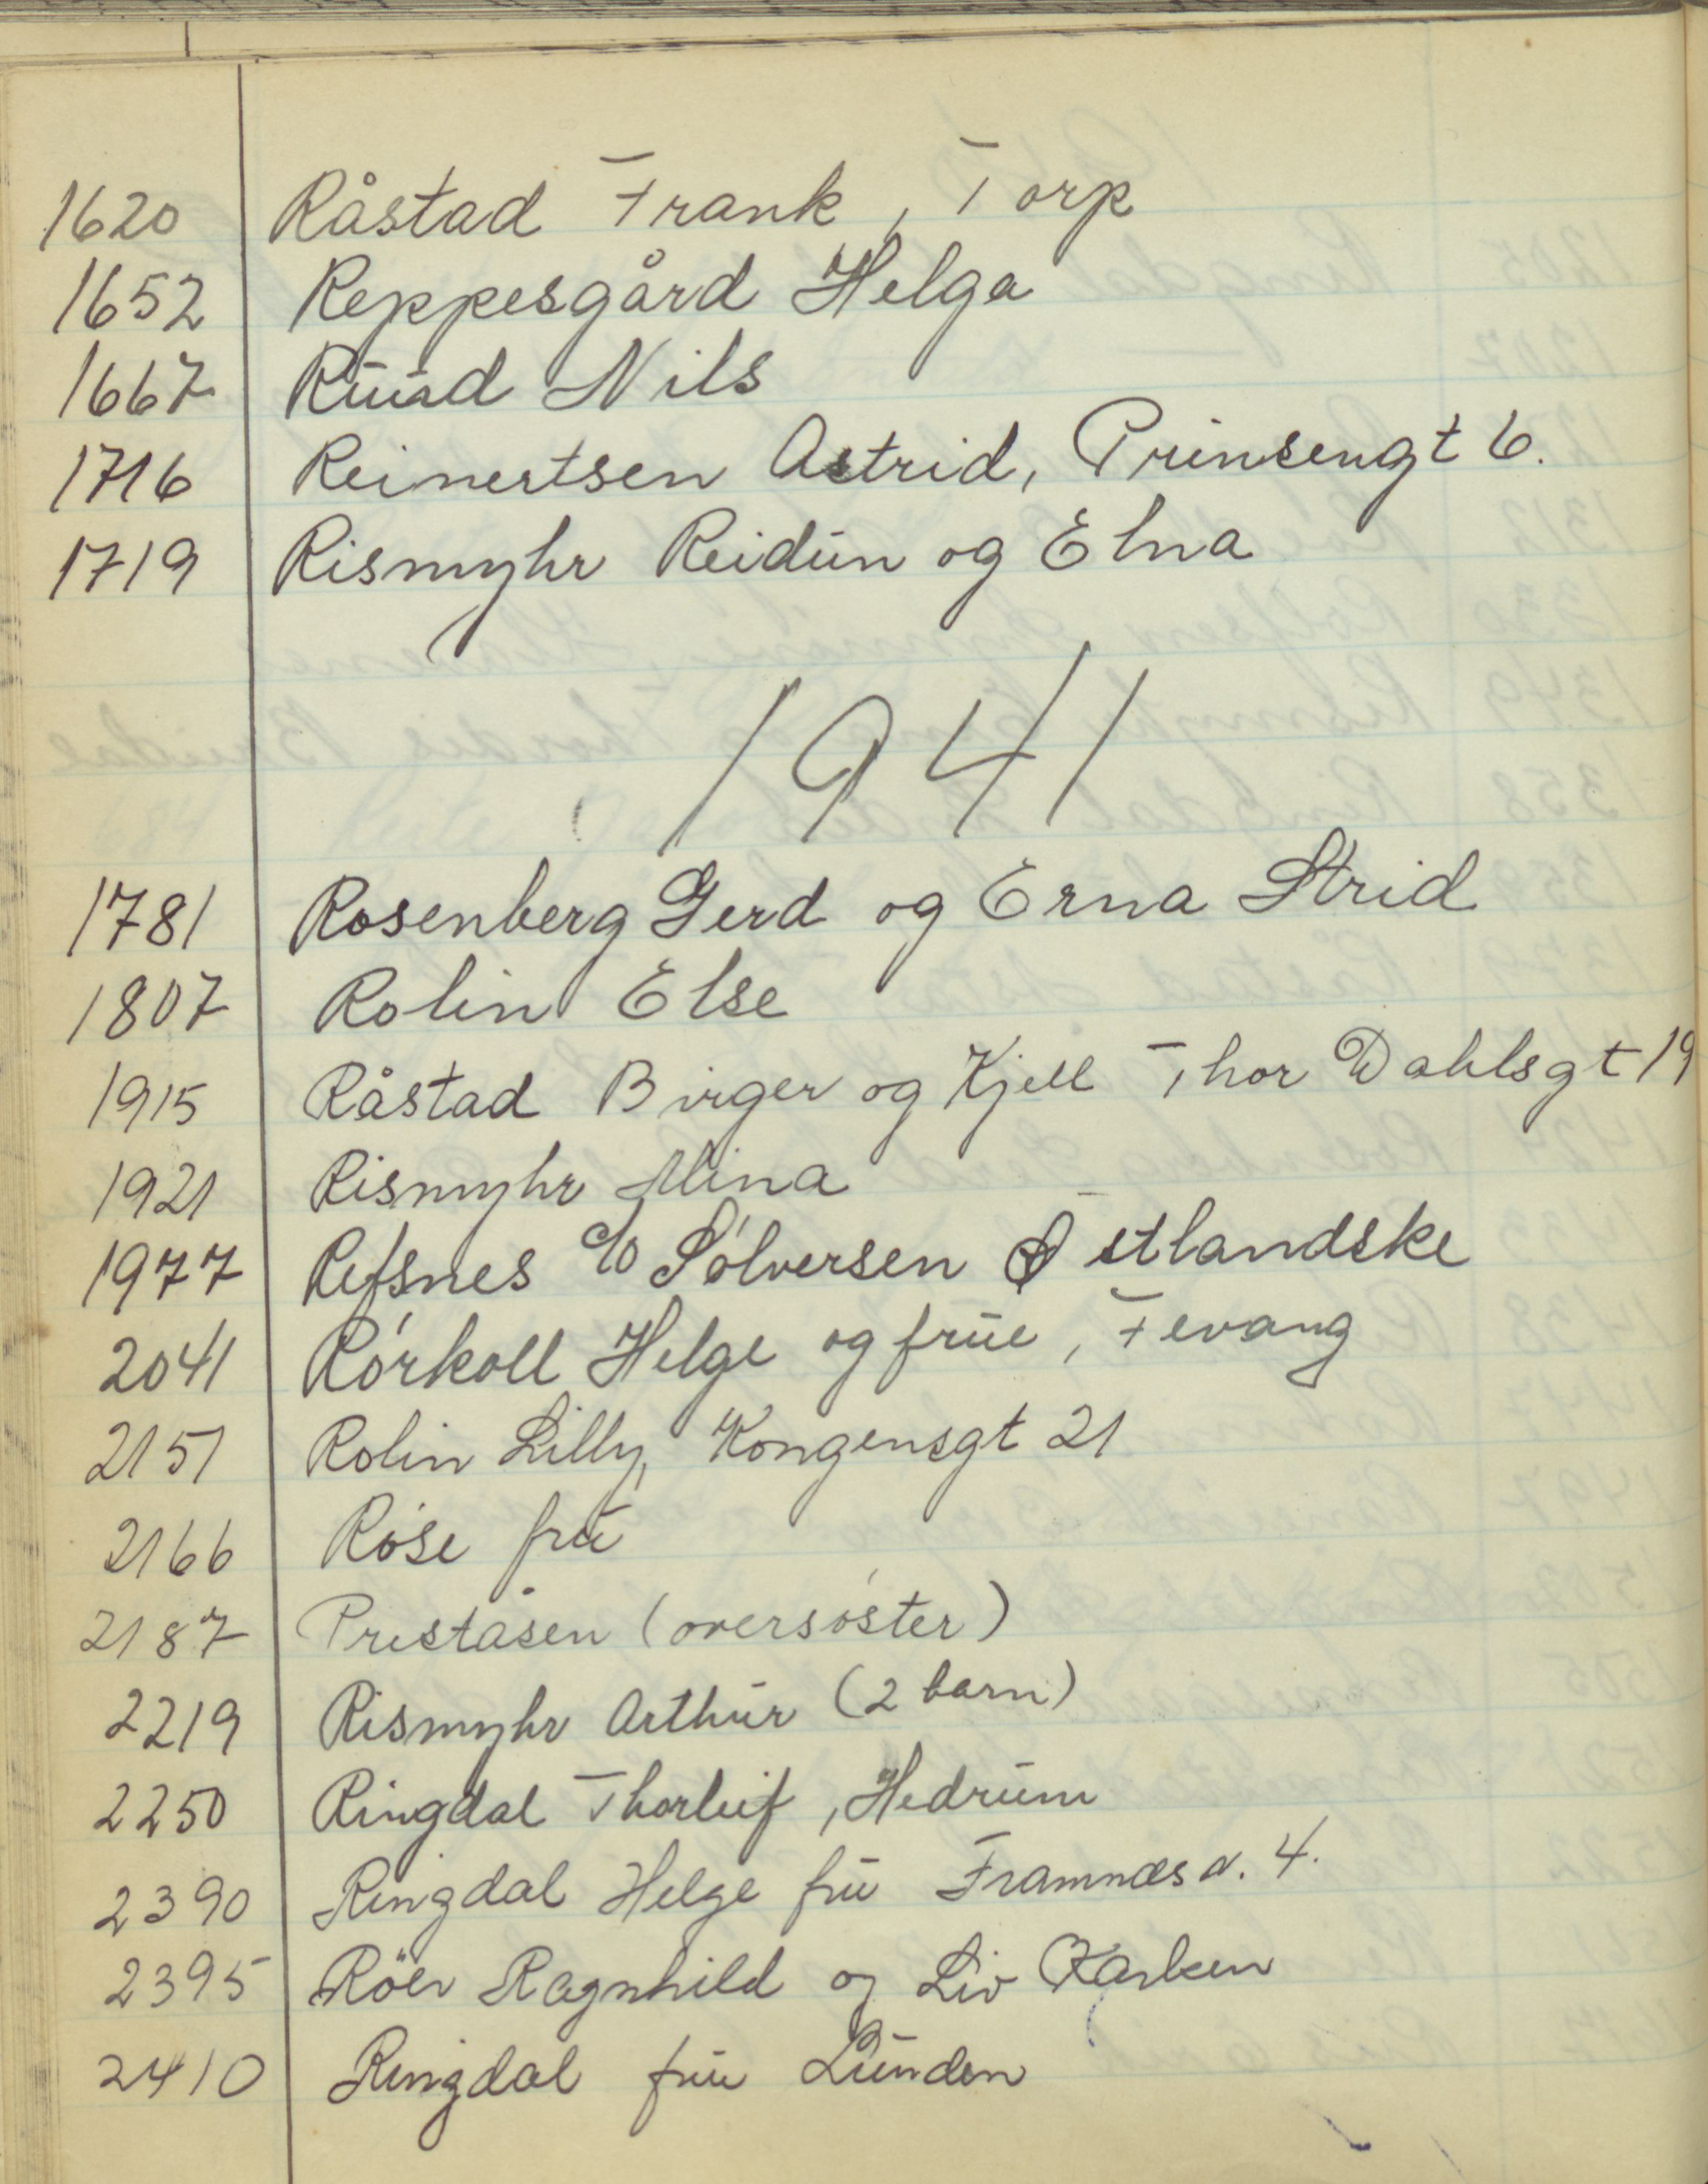 1620 Råstad Frank, Torp
1652 Reppesgård Helga
1667 Ruud Nils
1716 Reinertsen Astrid, Prinsengt 6.
1719 Rismyhr Reidun og Elna
1941
1781 Rosenberg Gerd og Erna Strid
1807 Rolin Else
1915 Råstad Birger og Kjell Thor Dahlsgt 19
1921 Rismyhr Mina
1977 Refsnes c/o Sølversen Østlandske
2041 Rørkoll Helge og frue, Fevang
2151 Rolin Lilly, Kongensgt 21
2166 Røse fru
2187 Preståsen (oversøster)
2219 Rismyhr Arthur (2 barn)
2250 Ringdal Thorleif, Hedrum
2390 Ringdal Helge fru Framnæsv. 4.
2395 Röer Ragnhild og Liv Karlsen
2410 Ringdal fru Lunden